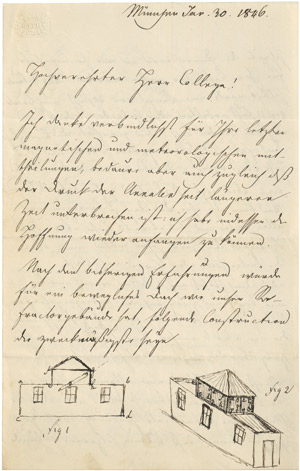 München Jan. 30. 1846.
Hochverehrter Herr College!
Ich danke verbindlichst für Ihre letzten
magnetischen und meteorologischen Mit-
theilungen, bedaure aber auch zugleich daß
der Druck der Annalen seit längerer
Zeit unterbrochen ist: ich habe indessen die
Hoffnung wieder anfangen zu können
Nach den bisherigen Erfahrungen würde
für ein bewegliches Dach wie unser Re-
fractorgebäude hat, folgende Construction
die zweckmäßigste seyn
fig 1
fig 2